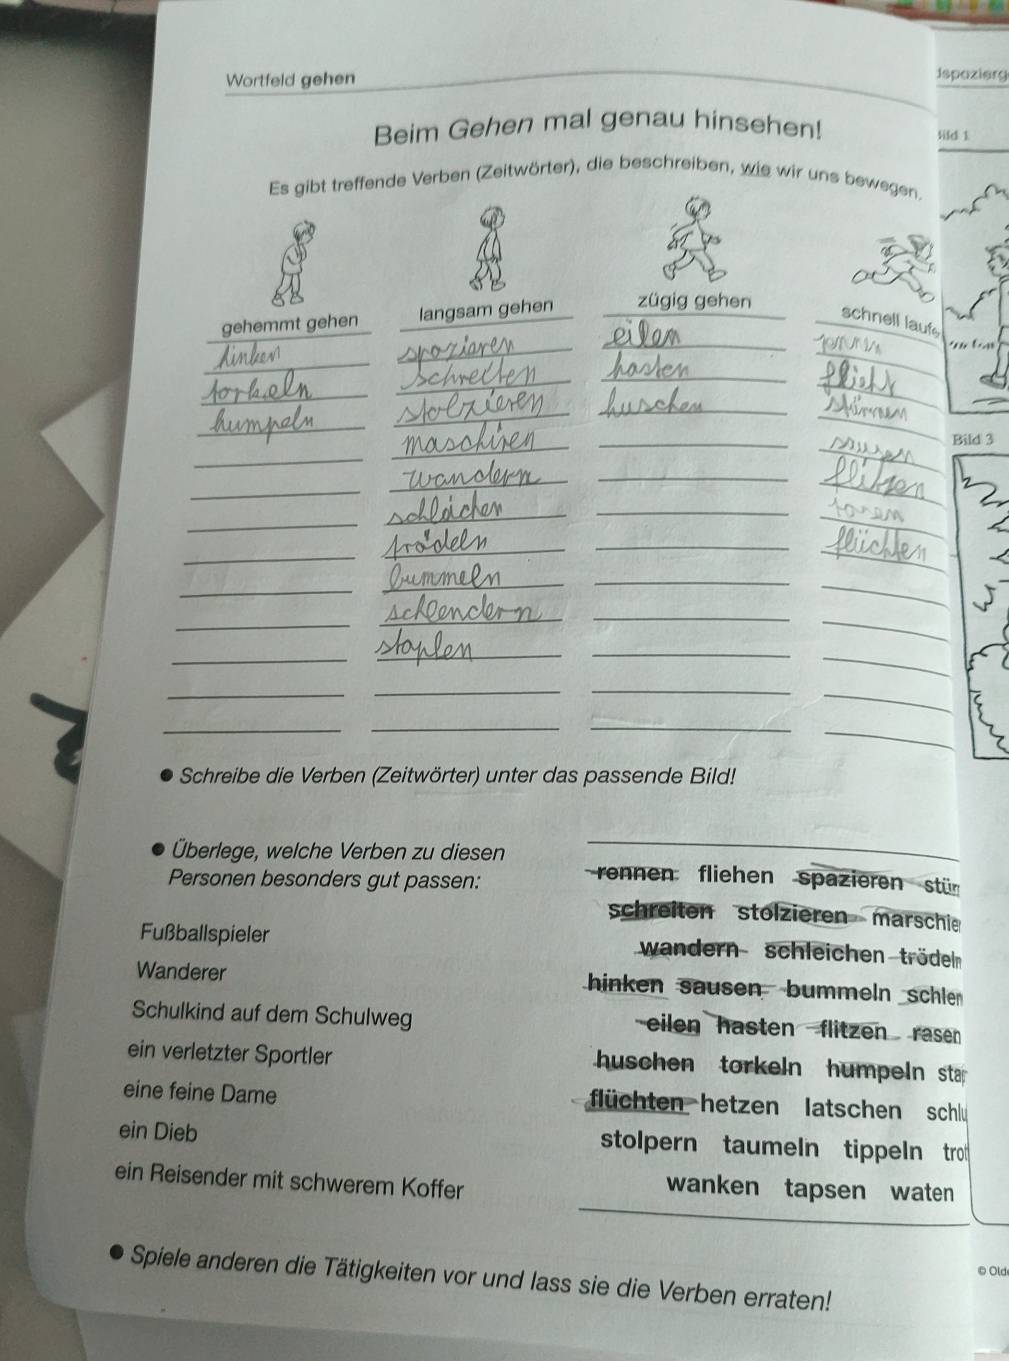 Wortfeld gehen
Beim Gehen mal genau hinsehen!
Es gibt treffende Verben (Zeitwörter), die beschreiben, wie wir uns bewegen.
gehemmt gehen langsam gehen zügig gehen schnell laufe
hinken spazieren eilen rennen
torkeln schreiten hasten flieht
humpeln stolzieren huschen stürmen
maschiren sausen
wandern flitzen
schleichen rasen
trödeln flüchten
bummeln
schlendern
stapfen
Schreibe die Verben (Zeitwörter) unter das passende Bild!
Überlege, welche Verben zu diesen
Personen besonders gut passen:
Fußballspieler
Wanderer
Schulkind auf dem Schulweg
ein verletzter Sportler
eine feine Dame
ein Dieb
ein Reisender mit schwerem Koffer
rennen fliehen spazieren stür
schreiten stolzieren marschie
wandern schleichen trödeln
hinken sausen bummeln schlen
eilen hasten flitzen rasen
huschen torkeln humpeln stap
flüchten hetzen latschen schlu
stolpern taumeln tippeln trot
wanken tapsen waten
Spiele anderen die Tätigkeiten vor und lass sie die Verben erraten!
dspazierg
Bild 1
Bild 3
© Olde